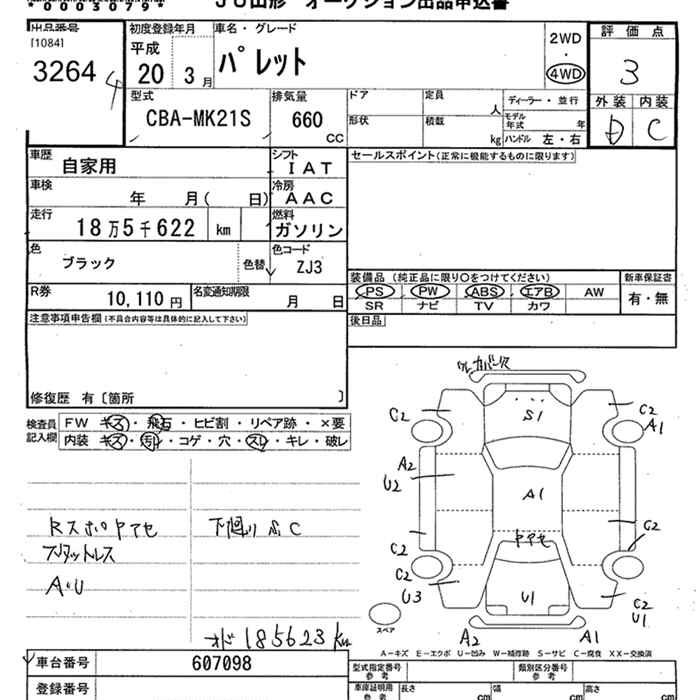 *0005079*
JU山形 オークション出品申込書
出品番号 初度登録年月 車名・グレード 2WD 評価点
[1084] 平成 ・
3264 4 20 3月 パレット 4WD 3
型式 排気量 ドア 定員 人 ディーラー・並行 外装 内装
CBA-MK21S 660 CC 形状 積載 kg モデル年式 年 D C
ハンドル 左・右
車歴 自家用 シフト IAT セールスポイント(正常に機能するものに限ります)
車検 年 月( 日) 冷房 AAC
走行 18万5千622 km 燃料 ガソリン
色 ブラック 色替 色コード ZJ3
装備品 (純正品に限り○をつけてください) 新車保証書
R券 10,110円 名変通知期限 月 日 PS PW ABS エアB AW 有・無
SR ナビ TV カワ
注意事項申告欄(不具合内容等は具体的に記入して下さい) 後日品
修復歴 有〔箇所 〕
検査員記入欄 FW キズ・飛石・ヒビ割・リペア跡・×要
内装 キズ・汚れ・コゲ・穴・スレ・キレ・破レ
C2 S1 C2
A1
A2
U2 A1
C2
C2 ヤアセ
C2
U3 U1 C2
U1
スペア A2 A1
Rスポヤアセ 下廻りS.C
スタットレス
A・U
オド 185623km
A−キズ E−エクボ U−凹み W−補修跡 S−サビ C−腐食 XX−交換済
車台番号 607098 型式指定番号 参考 類別区分番号 参考
登録番号 車庫証明用 参考 長さ cm 幅 cm 高さ cm